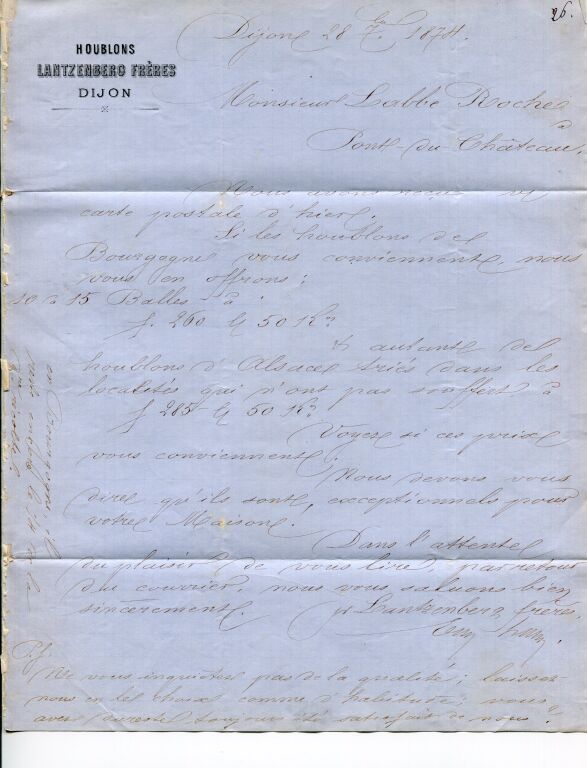 26.
HOUBLONS
LANTZENBERG FRÈRES
DIJON
Dijon 28 1874.
Monsieur Labbe Roche
à
Pont-du-Château.
Nous avons reçu v/
carte postale d'hier.
Si les houblons de
Bourgogne vous conviennent nous
vous en offrons :
10 à 15 Balles à
f. 260 les 50 K?
& autant de
houblons d'Alsace triés dans les
localités qui n'ont pas souffert à
f 285 les 50 K?
Voyez si ces prix
vous conviennent.
Nous devons vous
dire qu'ils sont, exceptionnels pour
votre Maison.
Dans l'attente
du plaisir de vous lire, par retour
du courrier, nous vous saluons bien
sincèrement. pr Lantzenberg frères.
P.S.
Ne vous inquiétez pas de la qualité; laissez-
nous en le choix comme d'habitude; vous
avez toujours été satisfait de nous.